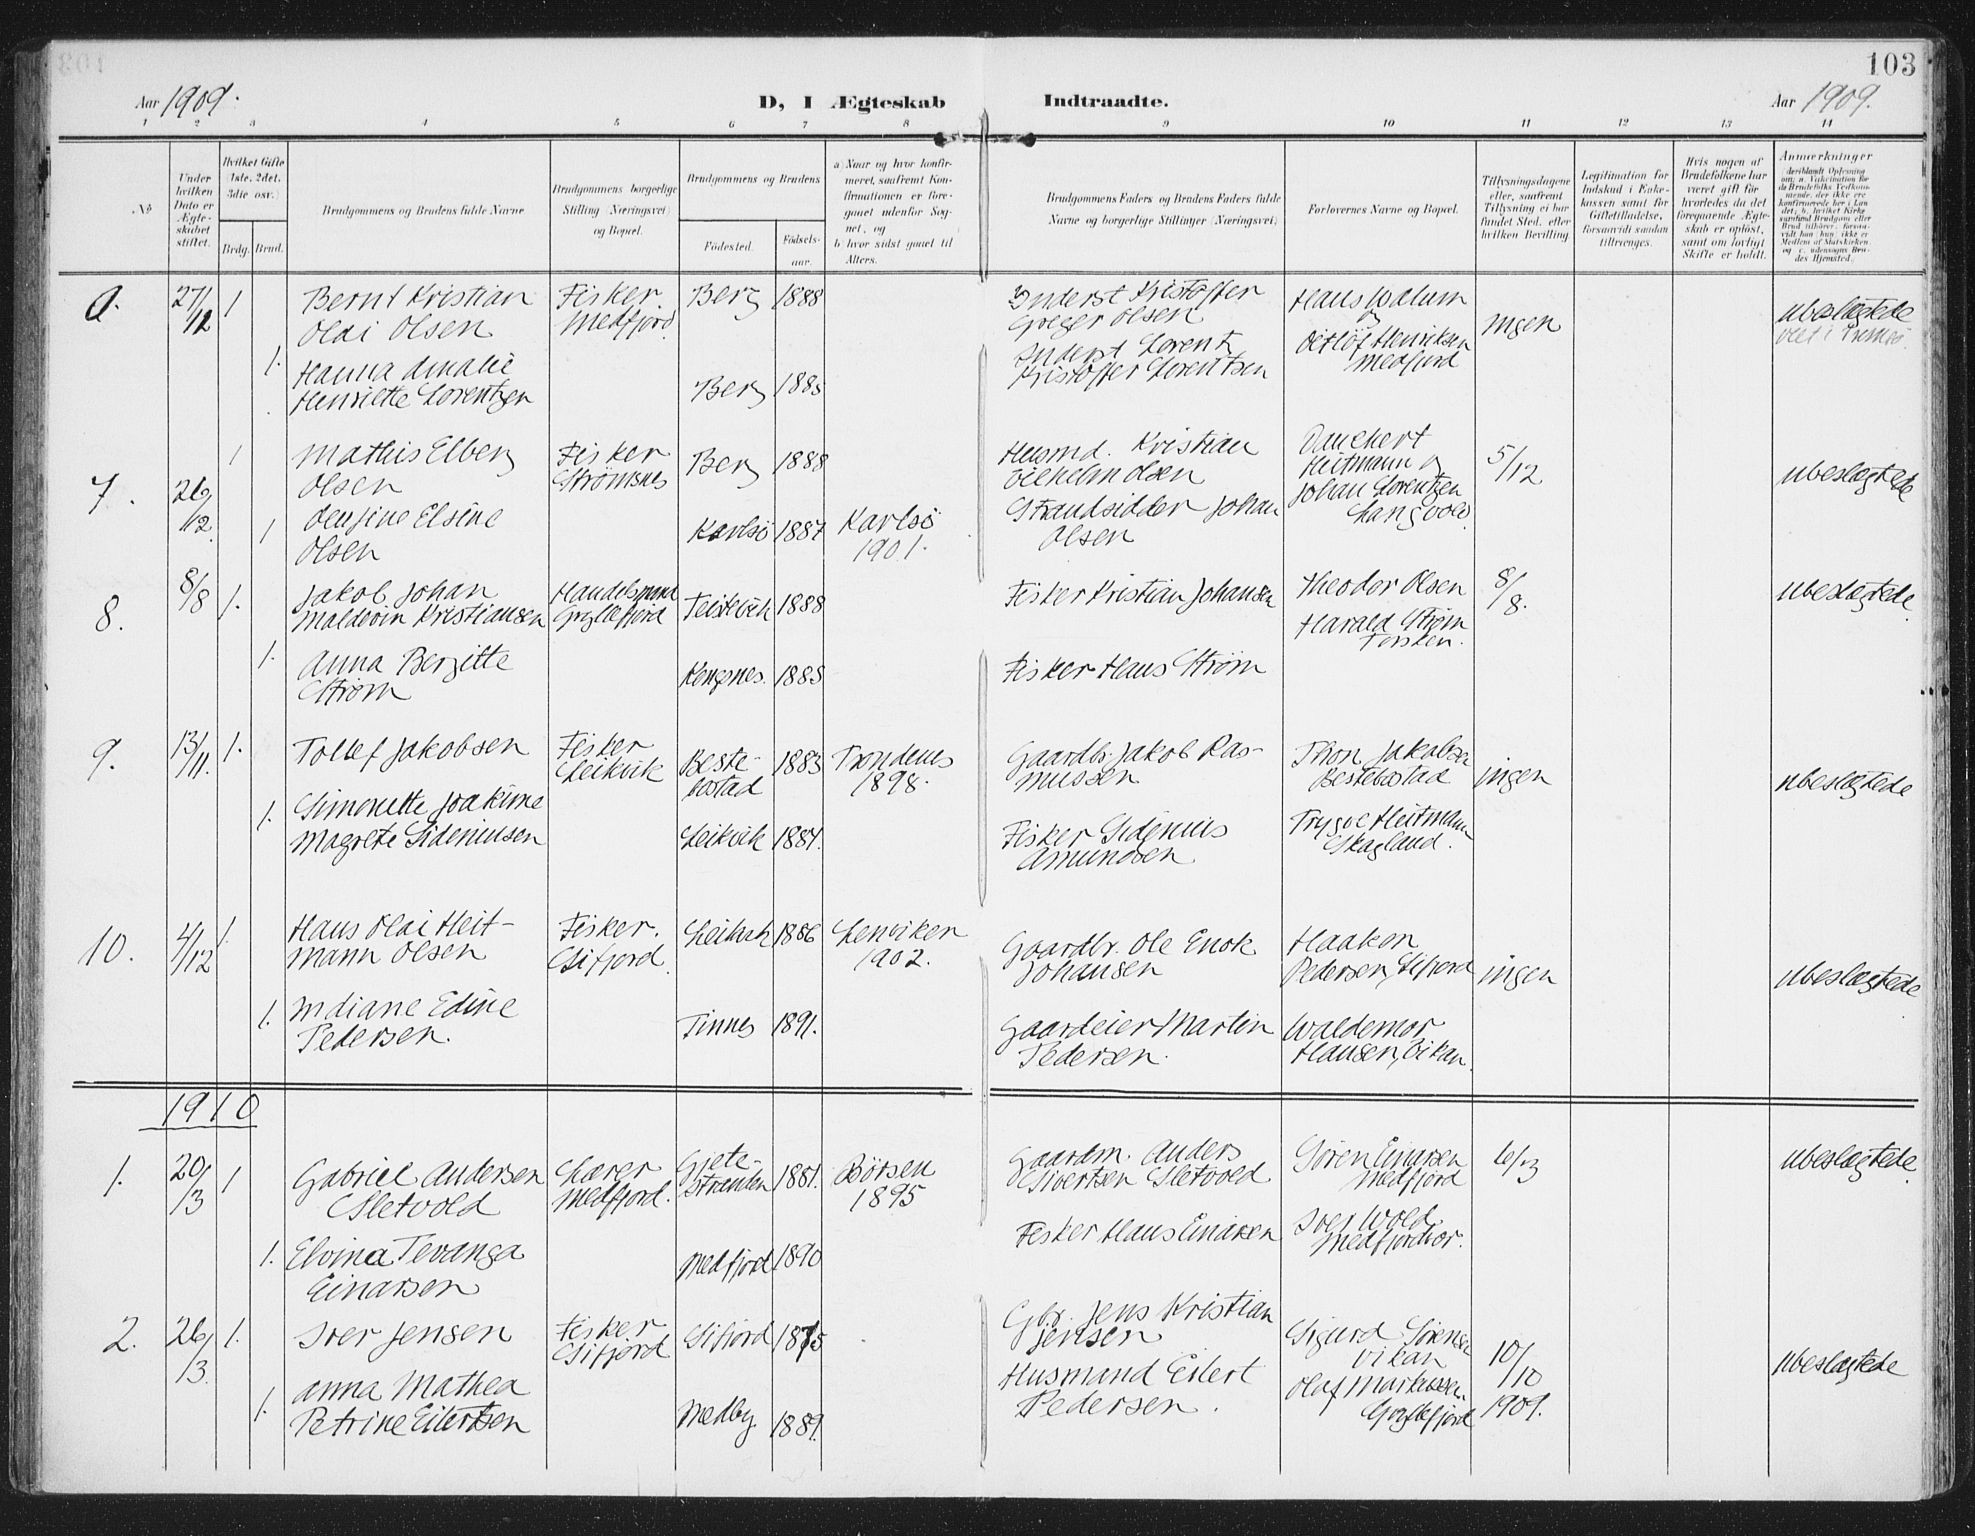 103
Aar 1909. D, I Ægteskab Indtraadte. Aar 1909.
1 2 3 4 5 6 7 8 9 10 11 12 13 14
No
Under hvilken Dato er Ægteskabet stiftet.
Hvilket Gifte (1ste, 2det, 3die osv.)
Brdg. Brud.
Brudgommens og Brudens fulde Navne.
Brudgommens borgerlige Stilling (Næringsvei) og Bopæl.
Brudgommens og Brudens
Fødested. Fødselsaar.
a) Naar og hvor konfirmeret, saafremt Konfirmationen er foregaaet udenfor Sognet, og
b) hvor sidst gaaet til Alters.
Brudgommens Faders og Brudens Faders fulde Navne og borgerlige Stillinger (Næringsvei).
Forlovernes Navne og Bopæl.
Tillysningsdagene eller, saafremt Tillysning ei har fundet Sted, efter hvilken Bevilling.
Legitimation for Indskud i Enkekassen samt for Giftetilladelse, forsaavidt saadan tiltrænges.
Hvis nogen af Brudefolkene har været gift før hvorledes da det foregaaende Ægteskab er opløst, samt om lovligt Skifte er holdt.
Anmerkninger
a. 27/12 1 Bernt Kristian Fisker. Berg 1888 Inderst Kristoffer Hans Walum ingen ubeslægtede
Olai Olsen Medfjord Greger Olsen og
1. Hanna Amalie Inderst Lorentz Ditløf Henriksen
Henriette Lorentzen Berg 1885 Kristoffer Lorentzen Medfjord
7. 26/12 1 Mathis Elberg Fisker Berg 1888 Husmd. Kristian Danckert 5/12 ubeslægtede
Olsen Strømsnes Vilhelm Olsen Heitmann og
1 Elsine Karlsö 1887 Karlsö Strandsidder Johan Johan Lorentzen
Olsen 1901. Olsen Langvold
8. 8/8 1. Jakob Johan Handelsmand Teistevik 1888 Fisker Kristian Johansen Theodor Olsen 8/8. ubeslægtede
Maldevin Kristiansen Gryllefjord Harald Strøm
1. Anna Bergitte Kongsnes. 1885 Fisker Hans Strøm Torsken.
Strøm
9. 13/11. 1. Tollef Jakobsen Fisker Beste- 1883 Trondenes Gaardbr. Jakob Ras- Thon Jakobsen ingen ubeslægtede
Leikvik bostad 1898. mussen Bestebostad
1. Simonette Joakime
Magrete Sideniusen Leikvik 1887. Fisker Sidenius Trygve Heitmann
Amundsen Skagland.
10. 4/12 1. Hans Olai Heit- Fisker. 1886 Lenviken Gaardbr. Ole Enok Haakon ingen ubeslægtede
mann Olsen Sifjord. 1902. Johansen Pedersen, Sifjord
1. Indiane Edine Finnes 1891. Gaardeier Martin Waldemar
Pedersen. Pedersen. Hansen, Vikan
1910
1. 20/3 1 Gabriel Andersen Lærer Gjete- 1881. Börsen Gaardm. Anders Sören Einarsen 6/3 ubeslægtede.
Sletvold Medfjord. stranden 1895 Sivertsen Sletvold Medfjord
1. Elvina Tevanga Medfjord 1890 Fisker Hans Einarsen Iver Wold
Einarsen Medfjordvær.
2. 26/3. 1. Iver Jensen Fisker Sifjord 1875 Gbr. Jens Kristian Sigurd Sörensen 10/10 1909. ubeslægtede
Sifjord Jensen Vikan
1. Anna Mathea Husmand Eilert Olaf Markussen.
Petrine Eilertsen Medby 1889. Pedersen. Gryllefjord